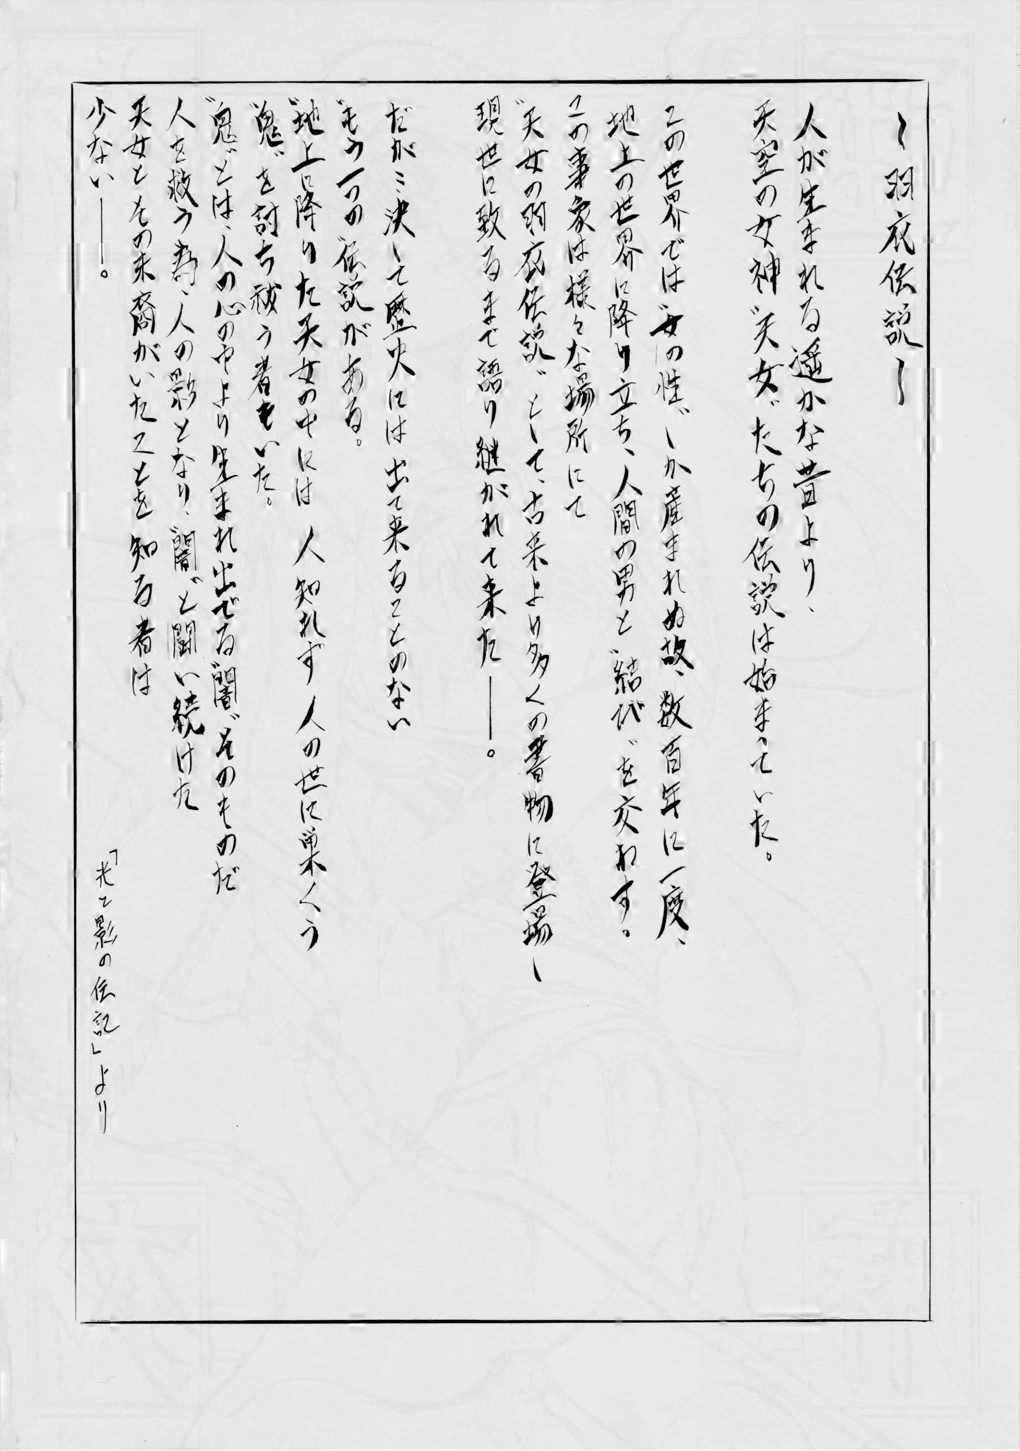 ～羽衣伝説～
人が生まれる遥かな昔より、
天空の女神〝天女〟たちの伝説は始まっていた。
この世界では〝女の性〟しか産まれぬ故、数百年に一度、
地上の世界に降り立ち、人間の男と〝結び〟を交わす。
この事象は様々な場所にて
〝天女の羽衣伝説〟として、古来より多くの書物に登場し
現世に致るまで語り継がれて来た――。
だが…決して歴史には出て来ることのない
〝もう一つの伝説〟がある。
〝地上に降りた天女の中には 人知れず 人の世に巣くう
〝鬼〟を討ち祓う者もいた。
〝鬼〟とは、人の心の中より生まれ出でる〝闇〟そのものだ
人を救う為、人の影となり、〝闇〟と闘い続けた
天女とその末裔がいたことを知る者は
少ない――。
「光と影の伝記」より